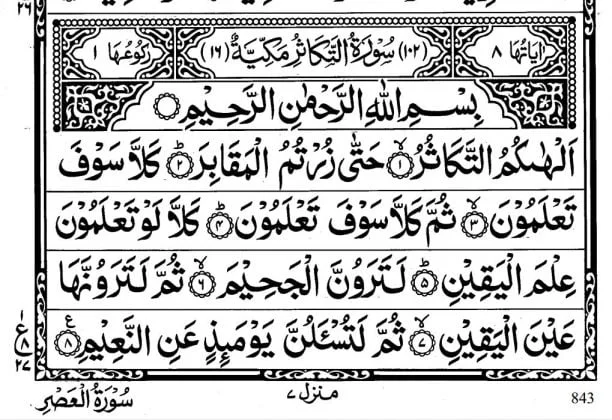 ٢٦
اٰیَاتُهَا ٨ (١٠٢) سُوْرَةُ التَّكَاثُرِ مَكِّیَّةٌ (١٦) رُكُوْعُهَا ١
بِسْمِ اللّٰهِ الرَّحْمٰنِ الرَّحِیْمِ
اَلْهٰىكُمُ التَّكَاثُرُ ۙ﴿١﴾ حَتّٰى زُرْتُمُ الْمَقَابِرَ ؕ﴿٢﴾ كَلَّا سَوْفَ
تَعْلَمُوْنَ ۙ﴿٣﴾ ثُمَّ كَلَّا سَوْفَ تَعْلَمُوْنَ ؕ﴿٤﴾ كَلَّا لَوْ تَعْلَمُوْنَ
عِلْمَ الْیَقِیْنِ ؕ﴿٥﴾ لَتَرَوُنَّ الْجَحِیْمَ ۙ﴿٦﴾ ثُمَّ لَتَرَوُنَّهَا
عَیْنَ الْیَقِیْنِ ۙ﴿٧﴾ ثُمَّ لَتُسْـَٔلُنَّ یَوْمَىِٕذٍ عَنِ النَّعِیْمِ ﴿٨﴾ ع
١
ع ٨
٢٧
843 منزل ٧ سُوْرَةُ الْعَصْرِ